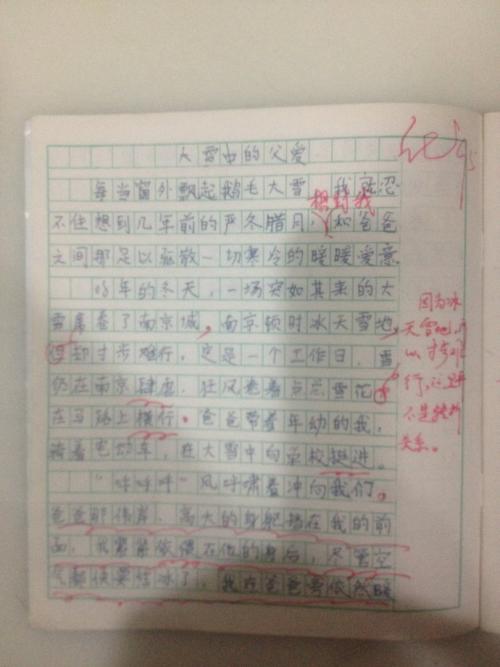 大雪中的父爱
每当窗外飘起鹅毛大雪,我就忍
不住想到几年前的严冬腊月,和爸爸
想到我
之间那足以驱散一切寒冷的暖暖爱意
08年的冬天,一场突如其来的大
雪席卷了南京城,南京顿时冰天雪地,
但却寸步难行。这是一个工作日,雪
仍在南京肆虐,狂风卷着点点雪花
在马路上横行。爸爸带着年幼的我,
骑着电动车,在大雪中向学校挺进。
"呼呼呼"风呼啸着冲向我们,
爸爸那伟岸、高大的身躯挡在我的前
面,我紧紧依偎在他的身后,尽管空
气都快要结冰了,我在爸爸旁依然暖
因为冰
天雪地,所
以寸步难
行,这里并
不是转折
关系。